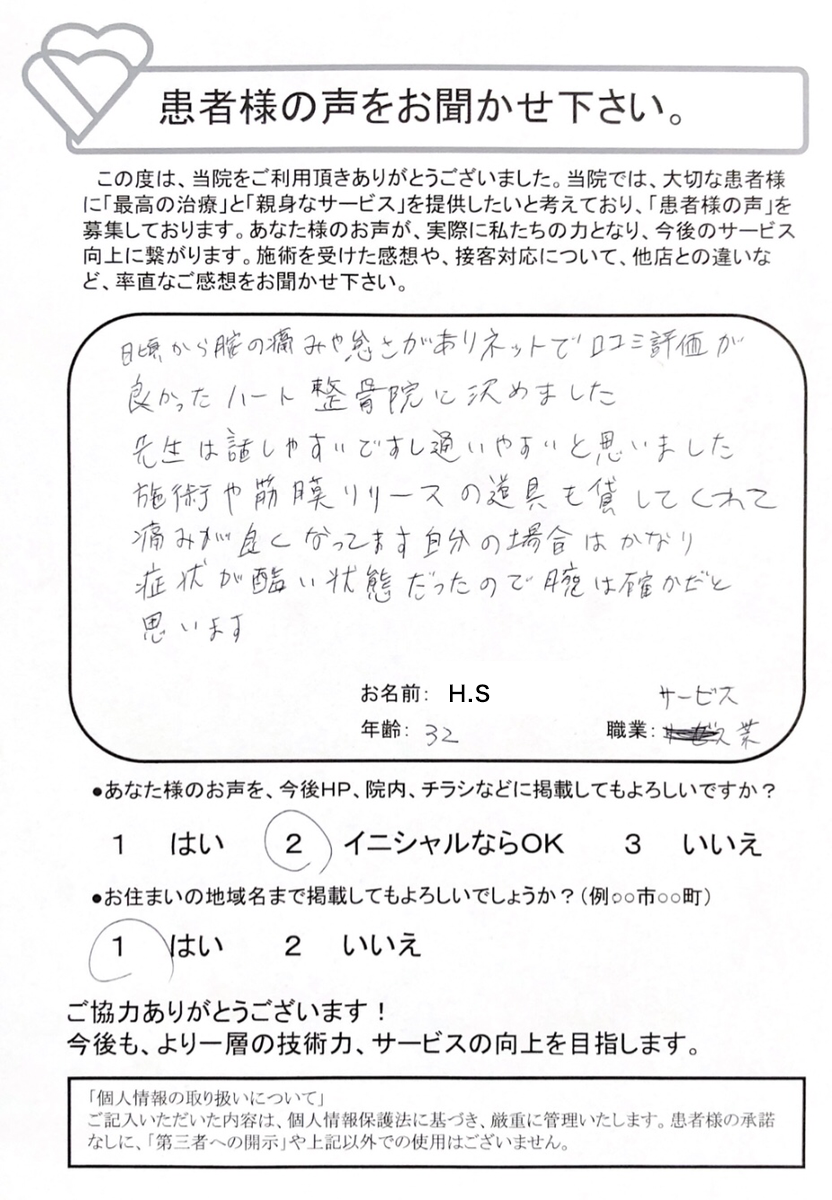 患者様の声をお聞かせ下さい。
この度は、当院をご利用頂きありがとうございました。当院では、大切な患者様
に「最高の治療」と「親身なサービス」を提供したいと考えており、「患者様の声」を
募集しております。あなた様のお声が、実際に私たちの力となり、今後のサービス
向上に繋がります。施術を受けた感想や、接客対応について、他店との違いな
ど、率直なご感想をお聞かせ下さい。
日頃から腕の痛みや怠さがありネットで口コミ評価が
良かったハート整骨院に決めました
先生は話しやすいですし通いやすいと思いました
施術や筋膜リリースの道具も貸してくれて
痛みが良くなってます自分の場合はかなり
症状が酷い状態だったので腕は確かだと
思います
お名前: H.S
サービス
年齢: 32 職業: 業
●あなた様のお声を、今後HP、院内、チラシなどに掲載してもよろしいですか?
1 はい 2 イニシャルならOK 3 いいえ
●お住まいの地域名まで掲載してもよろしいでしょうか?(例○○市○○町)
1 はい 2 いいえ
ご協力ありがとうございます!
今後も、より一層の技術力、サービスの向上を目指します。
「個人情報の取り扱いについて」
ご記入いただいた内容は、個人情報保護法に基づき、厳重に管理いたします。患者様の承諾
なしに、「第三者への開示」や上記以外での使用はございません。